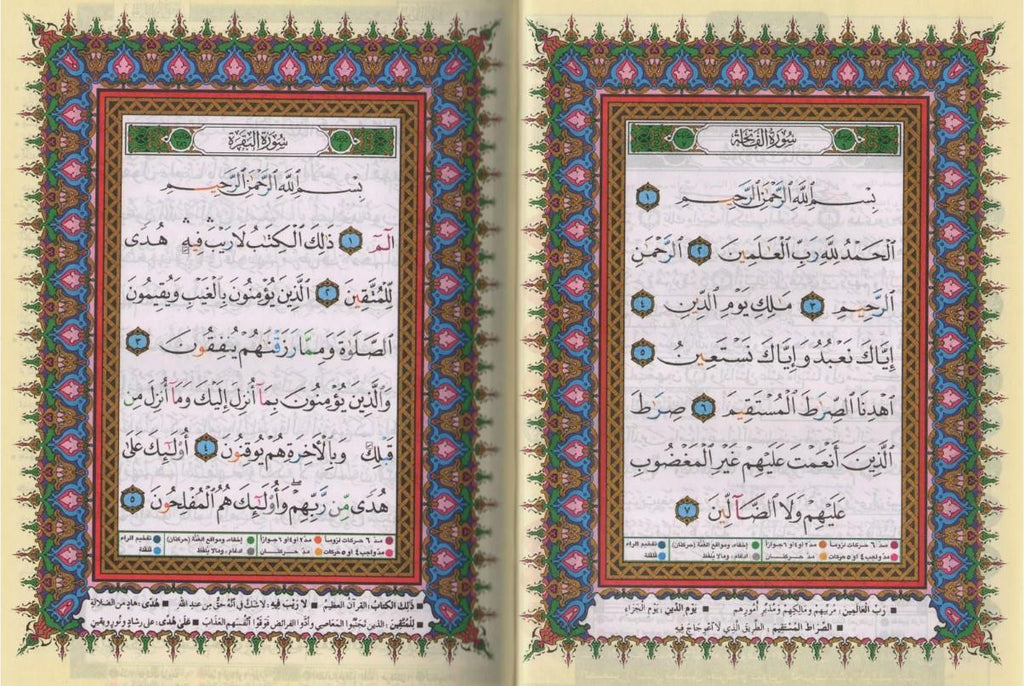 سُورَةُ الفَاتِحَة
بِسْمِ ٱللَّهِ ٱلرَّحْمَٰنِ ٱلرَّحِيمِ ١
ٱلْحَمْدُ لِلَّهِ رَبِّ ٱلْعَٰلَمِينَ ٢ ٱلرَّحْمَٰنِ
ٱلرَّحِيمِ ٣ مَٰلِكِ يَوْمِ ٱلدِّينِ ٤
إِيَّاكَ نَعْبُدُ وَإِيَّاكَ نَسْتَعِينُ ٥
ٱهْدِنَا ٱلصِّرَٰطَ ٱلْمُسْتَقِيمَ ٦ صِرَٰطَ
ٱلَّذِينَ أَنْعَمْتَ عَلَيْهِمْ غَيْرِ ٱلْمَغْضُوبِ
عَلَيْهِمْ وَلَا ٱلضَّآلِّينَ ٧
مدّ ٦ حركات لزوماً ● مدّ ٢ او٤ او٦ جوازاً ● إخفاء، ومواقع الغُنَّة (حركتان) ● تفخيم الراء
مدّ واجب ٤ او ٥ حركات ● مدّ حركتان ● إدغام، وما لا يُلفظ ● قلقلة
■ رَبِّ العَالَمِين: مُرَبِّيهِمْ وَمَالِكِهِمْ وَمُدَبِّرِ أُمُورِهِم ■ يَوْمِ الدِّين: يَوْمِ الجَزَاءِ
■ الصِّرَاطَ المُسْتَقِيمَ: الطَّرِيقَ الَّذِي لَا اعْوِجَاجَ فِيهِ
سُورَةُ البَقَرَة
بِسْمِ ٱللَّهِ ٱلرَّحْمَٰنِ ٱلرَّحِيمِ
الٓمٓ ١ ذَٰلِكَ ٱلْكِتَٰبُ لَا رَيْبَ ۛ فِيهِ ۛ هُدًى
لِّلْمُتَّقِينَ ٢ ٱلَّذِينَ يُؤْمِنُونَ بِٱلْغَيْبِ وَيُقِيمُونَ
ٱلصَّلَوٰةَ وَمِمَّا رَزَقْنَٰهُمْ يُنفِقُونَ ٣
وَٱلَّذِينَ يُؤْمِنُونَ بِمَآ أُنزِلَ إِلَيْكَ وَمَآ أُنزِلَ مِن
قَبْلِكَ وَبِٱلْأَخِرَةِ هُمْ يُوقِنُونَ ٤ أُوْلَٰٓئِكَ عَلَىٰ
هُدًى مِّن رَّبِّهِمْ ۖ وَأُوْلَٰٓئِكَ هُمُ ٱلْمُفْلِحُونَ ٥
مدّ ٦ حركات لزوماً ● مدّ ٢ او٤ او٦ جوازاً ● إخفاء، ومواقع الغُنَّة (حركتان) ● تفخيم الراء
مدّ واجب ٤ او ٥ حركات ● مدّ حركتان ● إدغام، وما لا يُلفظ ● قلقلة
■ ذَلِكَ الكِتَابُ: القرآن العظيمُ ■ لَا رَيْبَ فِيهِ: لا شَكَّ في أنَّهُ حَقٌّ من عند الله ■ هُدًى: هادٍ من الضلالةِ
■ لِلْمُتَّقِينَ: الذين تَجَنَّبُوا المعاصي وأَدَّوا الفرائضَ فَوَقَوْا أنفُسَهم العذابَ ■ عَلَى هُدًى: على رشادٍ ونورٍ ويقينٍ